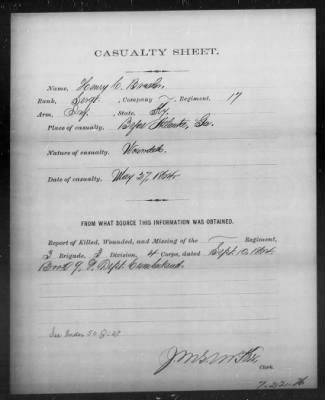 CASUALTY SHEET.
Name, Henry C.
Rank, Sergt. , Company — Regiment, 17
Arm, Inf. , State, Ky
Place of casualty, Before Atlanta, Ga.
Nature of casualty, Wounded.
Date of casualty, May 27, 1864.
FROM WHAT SOURCE THIS INFORMATION WAS OBTAINED.
Report of Killed, Wounded, and Missing of the — Regiment,
3 Brigade, 3 Division, 4 Corps, dated Sept. 10, 1864
Book 9, Dept. Cumberland.
See
Clerk.